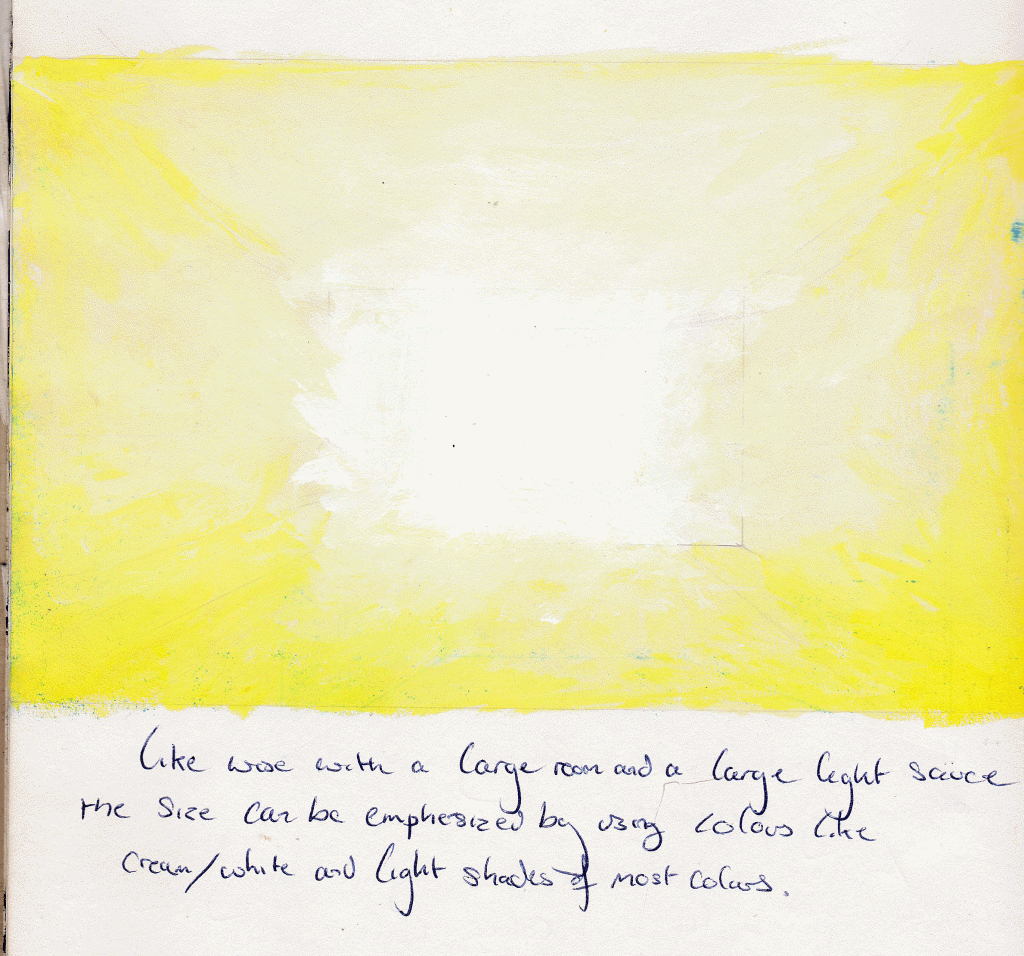 like wise with a large room and a large light sauce
the size can be emphesized by using colours like
cream/white and light shades of most colours.